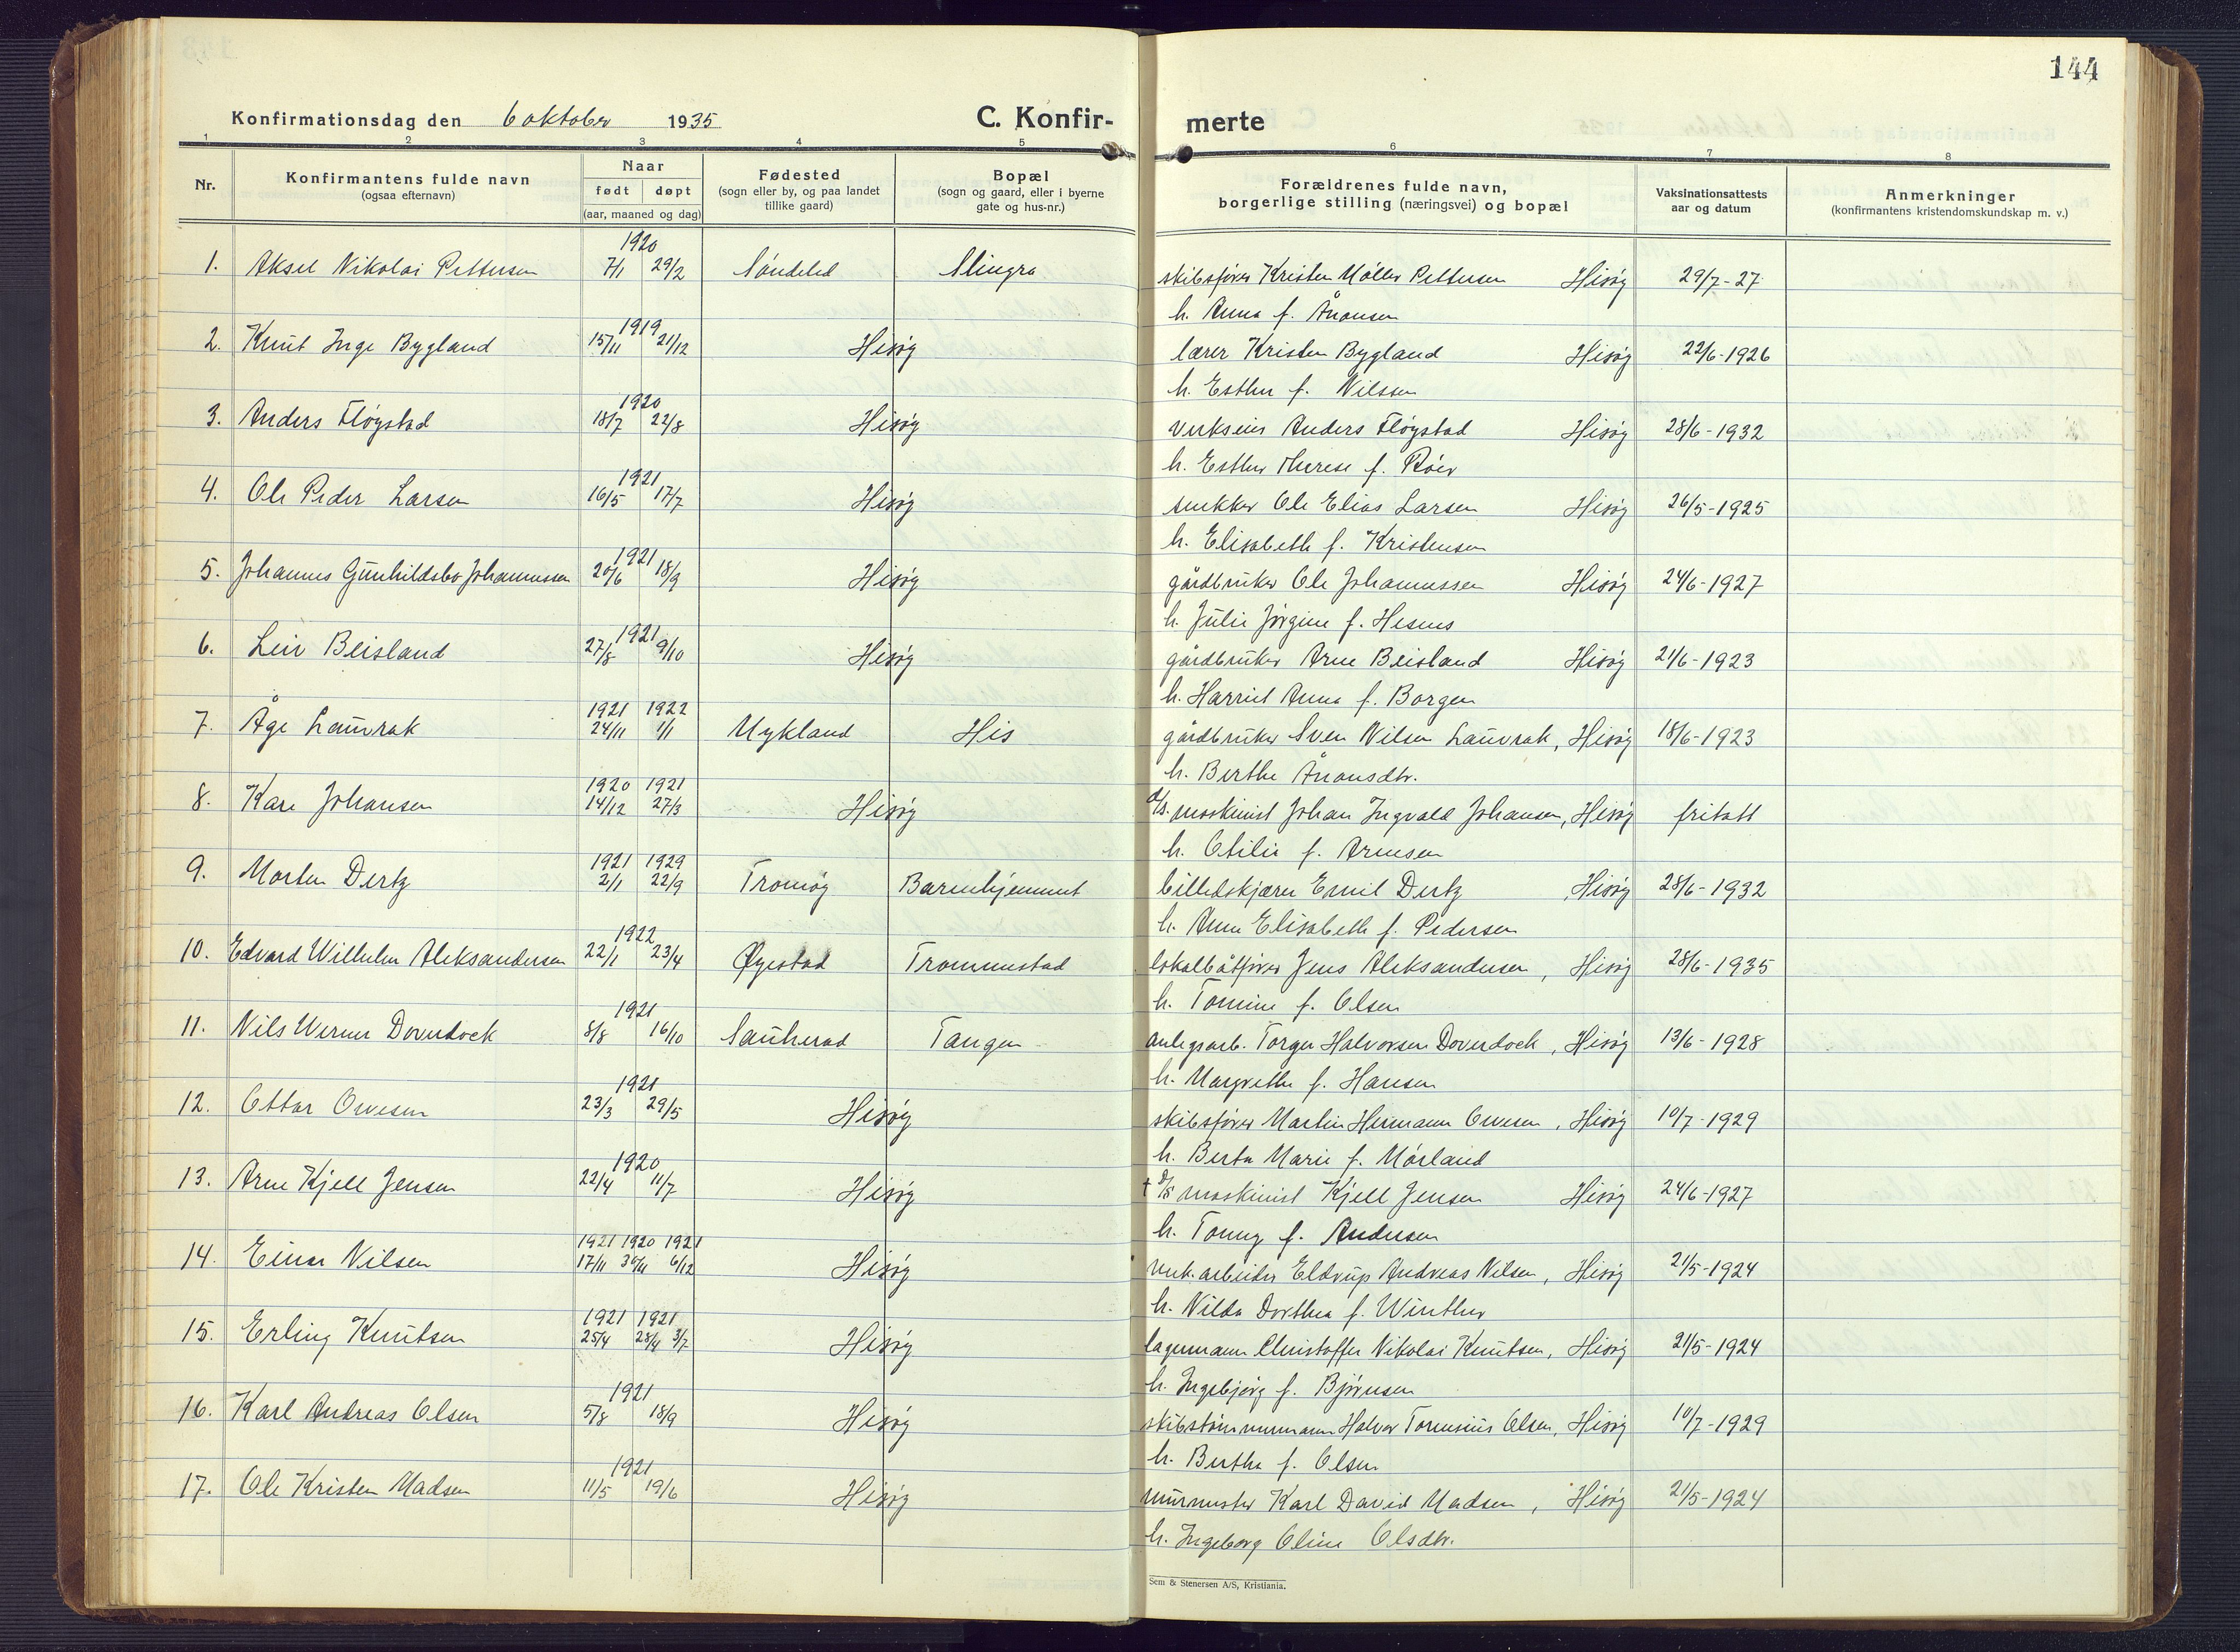 144
Konfirmationsdag den 6 oktober 1935
C. Konfir-
merte
1 2 3 4 5 6 7 8
Nr.
Konfirmantens fulde navn
(ogsaa efternavn)
Naar
født døpt
(aar, maaned og dag)
Fødested
(sogn eller by, og paa landet
tillike gaard)
Bopæl
(sogn og gaard, eller i byerne
gate og hus-nr.)
Forældrenes fulde navn,
borgerlige stilling (næringsvei) og bopæl
Vaksinationsattests
aar og datum
Anmerkninger
(konfirmantens kristendomskundskap m. v.)
1920
1. Aksel Nikolai Pettersen 7/1 29/2 Søndeled skibsfører Kristen Møller Pettersen Hisøy 29/7-27
h. Anna f. Ånonsen
1919
2. Knut Inge Bygland 15/11 21/12 Hisøy lærer Kristen Bygland Hisøy 22/6-1926
h. Esther f. Nilssen
1920
3. Anders Fløystad 18/7 22/8 Hisøy verkseier Anders Fløystad Hisøy 28/6-1932
h. Esther Therese f. Røer
1921
4. Ole Peder Larsen 16/5 17/7 Hisøy snekker Ole Elias Larsen Hisøy 26/5-1925
h. Elisabeth f. Kristensen
1921
5. Johannes Gunhildsbo Johannessen 20/6 18/9 Hisøy gårdbruker Ole Johannessen Hisøy 24/6-1927
h. Julie Jørgine f. Hesnes
1921
6. Leiv Beisland 27/8 9/10 Hisøy gårdbruker Arne Beisland Hisøy 21/6-1923
h. Harriet Anna f. Borgen
1921 1922
7. Åge Lauvrak 24/11 1/1 Mykland His gårdbruker Sven Nilsen Lauvrak, Hisøy 18/6-1923
h. Berthe Ånonsdtr.
1920 1921
8. Kåre Johansen 14/12 27/3 Hisøy d/s. maskinist Johan Ingvald Johansen, Hisøy fritatt
h. Otilie f. Arnesen
1921 1929
9. Morten Dertz 2/1 22/9 Tromøy Barnehjemmet billedskjærer Emil Dertz, Hisøy 28/6-1932
h. Anne Elisabeth f. Pedersen
1922
10. Edvard Wilhelm Aleksandersen 22/1 23/4 Øyestad Trommestad lokalbåtfører Jens Aleksandersen, Hisøy 28/6-1935
h. Tomine f. Olsen
1921
11. Nils Werner Doverdock 8/8 16/10 Sauherad Tangen anlegsarb. Torger Halvorsen Doverdock, Hisøy 13/6-1928
h. Margrethe f. Hansen
1921
12. Ottar Ovesen 23/3 29/5 Hisøy skibsfører Martin Hermann Ovesen, Hisøy 10/7-1929
h. Berta Marie f. Mørland
1920
13. Arne Kjell Jensen 22/4 11/7 Hisøy † d/s maskinist Kjell Jensen Hisøy 24/6-1927
h. Tonny f. Andersen
1921 1920 1921
14. Einar Nilsen 17/11 30/11 6/12 Hisøy verk.arbeider Eldrup Andreas Nilsen, Hisøy 21/5-1924
h. Nilda Dorthea f. Winther
1921 1921
15. Erling Knutsen 25/4 28/4 3/7 Hisøy lagermann Christoffer Nikolai Knutsen, Hisøy 21/5-1924
h. Ingebjørg f. Bjørnsen
1921
16. Karl Andreas Olsen 5/8 18/9 Hisøy skibstømmermann Halvor Tomenius Olsen, Hisøy 10/7-1929
h. Bertha f. Olsen
1921
17. Ole Kristen Madsen 11/5 19/6 Hisøy murmester Karl David Madsen, Hisøy 21/5-1924
h. Ingeborg Oline Olsdtr.
Sem & Stenersen A/S, Kristiania.